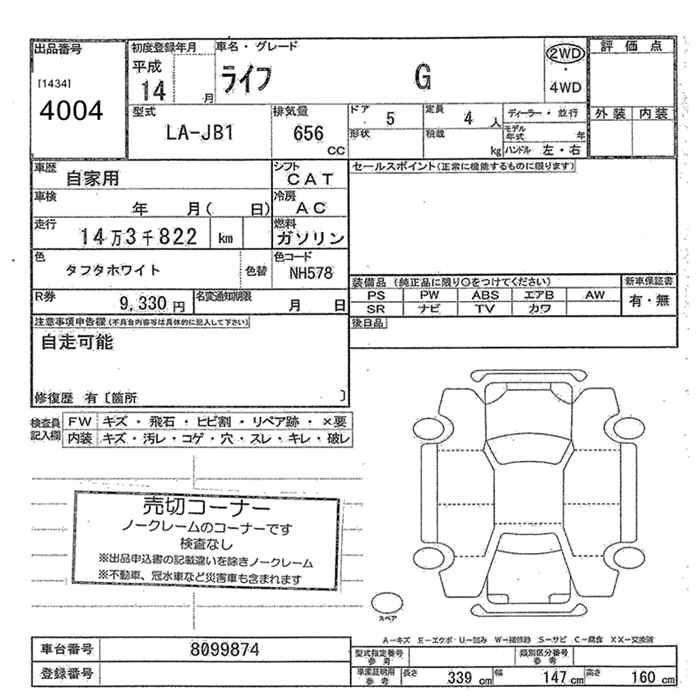 出品番号 初度登録年月 車名・グレード 2WD 評価点
[1434] 平成 ライフ G ・
4004 14 月 4WD
型式 排気量 ドア 5 定員 4 人 ディーラー・並行 外装 内装
LA-JB1 656 CC 形状 積載 kg モデル年式 年
ハンドル 左・右
車歴 自家用 シフト CAT セールスポイント(正常に機能するものに限ります)
車検 年 月( 日) 冷房 AC
走行 14万3千822 km 燃料 ガソリン
色 タフタホワイト 色替 色コード NH578
装備品 (純正品に限り○をつけてください) 新車保証書
R券 9,330円 名変通知期限 月 日 PS PW ABS エアB AW 有・無
SR ナビ TV カワ
注意事項申告欄(不具合内容等は具体的に記入して下さい) 後日品
自走可能
修復歴 有〔箇所 〕
検査員記入欄 FW キズ・飛石・ヒビ割・リペア跡・×要
内装 キズ・汚レ・コゲ・穴・スレ・キレ・破レ
売切コーナー
ノークレームのコーナーです
検査なし
※出品申込書の記載違いを除きノークレーム
※不動車、冠水車など災害車も含まれます
スペア
A-キズ E-エクボ U-凹み W-補修跡 S-サビ C-腐食 XX-交換済
車台番号 8099874 型式指定番号 参考 類別区分番号 参考
登録番号 車庫証明用 参考 長さ 339 cm 幅 147 cm 高さ 160 cm